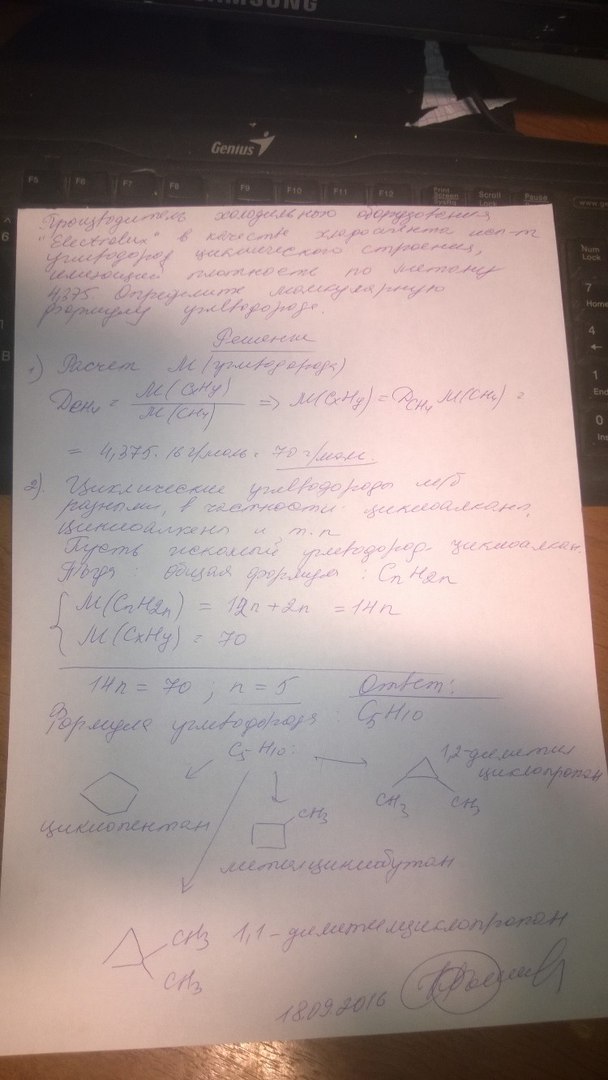 SAMSUNG
Genius
F5 F6 F7 F8 F9 F10 F11 F12 Print Screen SysRq Scroll Lock Pause
6
Num Lock
7 Home
4 ←
1 End
0 Ins
B
Производитель холодильного оборудования
"Electrolux" в качестве хлорагента исп-т
углеводород циклического строения,
имеющий плотность по метану
4,375. Определите молекулярную
формулу углеводорода.
Решение
1) Расчет M (углеводорода)
DCH4 = M(CxHy) / M(CH4) => M(CxHy) = DCH4 M(CH4) =
= 4,375 · 16 г/моль = 70 г/моль.
2) Циклические углеводороды м/б
разными, в частности: циклоалканы,
циклоалкены и т.п
Пусть искомый углеводород - циклоалкан.
Тогда: общая формула: CnH2n
M(CnH2n) = 12n + 2n = 14n
M(CxHy) = 70
14n = 70 ; n = 5 Ответ:
Формула углеводорода: C5H10
C5H10:
1,2-диметил
циклопропан
CH3 CH3
циклопентан
CH3
метилциклобутан
CH3 1,1-диметилциклопропан
CH3
18.09.2016